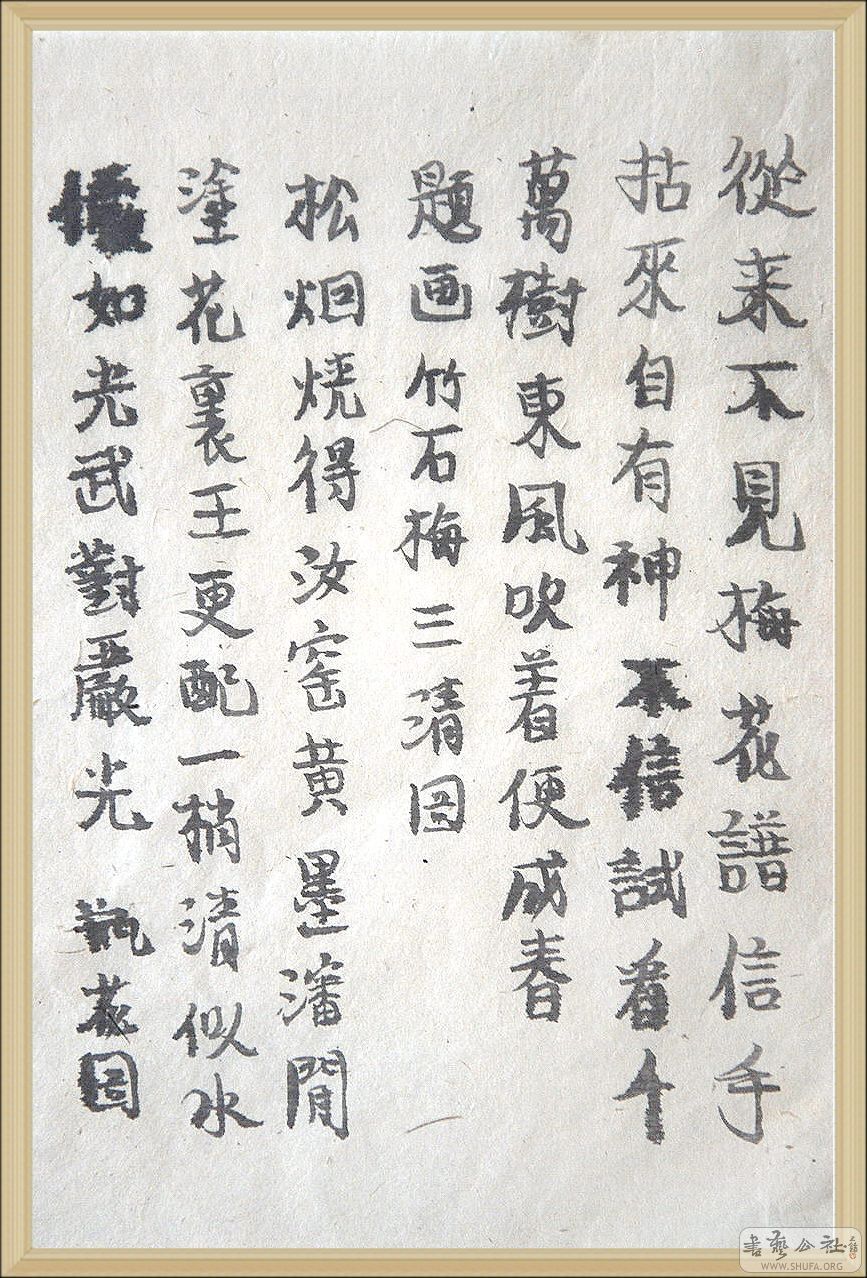 從来不見梅花譜信手
拈來自有神不信試看千
萬樹東風吹着便成春
題画竹石梅三清図
松烟燒得汝窑黄墨瀋閒
塗花裏王更配一梢清似水
如光武對嚴光 瓶花图
書藝公社
WWW.SHUFA.ORG